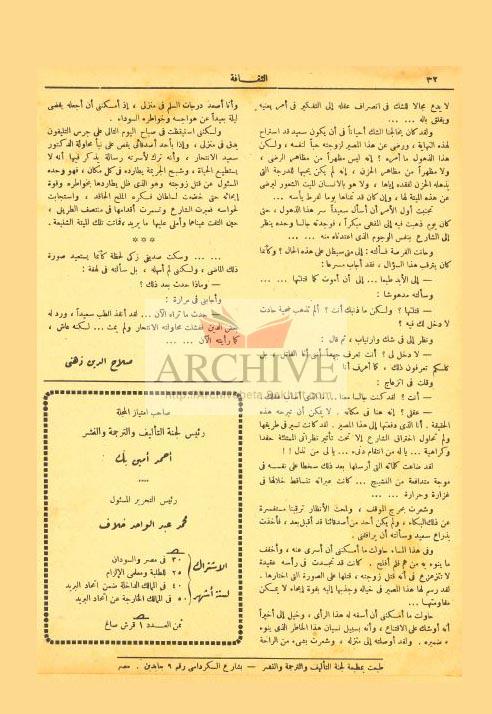 ٣٢
الثقافة
لا يدع مجالا للشك في انصراف عقله إلى التفكير في أمر يعنيه
ويقلق باله ... ...
ولقد كان يخالجنا الشك أحياناً في أن يكون سعيد قد استراح
لهذه النهاية، ورضى عن هذا المصير لزوجته حباً لنفسه، ولكن
هذا الذهول ما أمره؟ إنه ليس مظهراً من مظاهر الرضى،
ولا مظهراً من مظاهر الحزن، إنه لم يكن يحبها للدرجة التي
يذهله الحزن لفقده إياها، ولا هو بالانسان الميت الشعور ليرضى
عن هذه الميتة لها، وإن كان قد تمناها يوما لفرط يأسه ...
تجنبت أول الأمر أن أسأل سعيداً سر هذا الذهول، حتى
كان يوم ذهبت فيه إلى المقهى مبكراً، فوجدته جالسا وحده ينظر
إلى الشارع بنفس الوجوم الذى اعتدناه منه ... ...
وحانت الفرصة فسألته: إلى متى سيظل على هذه الحال؟ وكأنما
كان يترقب هذا السؤال، فقد أجاب مسرعا:
— إلى الأبد طبعا ... إلى أن أموت كما قتلتها ... ...
وسألته مدهوشا:
— قتلتها؟ ولكن ما ذنبك أنت؟ ألم تذهب ضحية حادث
لا دخل لك فيه؟
ونظر إلى في شك وارتياب، ثم قال:
— لا دخل لى؟ أنت تعرف جيداً أننى أنا القاتل، بل
كلسكم تعرفون ذلك، كما أعرف أنا
وقلت في انزعاج:
— أنت؟ لقد كنت جالسا معنا ...
— عقلى؟ إنه هنا في مكانه. لا يمكن أن تبرحه هذه
الحقيقة. أنا الذى دفعتها إلى هذا المصير. لقد كانت تسير في طريقها
ولم تحاول اختراق الشارع إلا تحت تأثير نظراتى الممتلئة حقدا
وكراهية ... يا له من انتقام دنىء ... يا لى من نذل!!
لقد ضاعت كلماته التى أرسلها بعد ذلك سخطا على نفسه في
موجة متدافعة من النشيج ... كانت عبراته تتساقط خلالها في
غزارة وحرارة ... ...
وشعرت بحرج الموقف، ولمحت الأنظار ترقبنا مستفسرة
عن ذلك البكاء، ولم يكن أحد من أصدقائنا قد أقبل بعد، فأخذت
بذراع سعيد وسألته أن يرافقنى.
وفى هذا المساء حاولت ما أمكننى أن أسرى عنه، وأخفف
ما ينوء به من هم فلم أفلح. كانت قد تجسدت في رأسه عقيدة
لا تتزعزع في أنه قتل زوجته، قتلها على الصورة التى اختارها.
لقد رسم لها هذا المصير في خياله وجذبها إليه بقوة إيحاء لا يمكن
مقاومتها ...
حاولت ما أمكننى أن أسفه له هذا الرأى، وخيل إلى أخيراً
أنه أوشك على الاقتناع، وأنه بسبيل نسيان هذا الخاطر الذى ينوء
به ضميره. ولقد أوصلته إلى منزله، وشعرت بشىء من الراحة
وأنا أصعد درجات السلم في منزلى، إذ أمكننى أن أجعله يقضى
ليلة بعيداً عن هواجسه وخواطره السوداء.
ولكنى استيقظت في صباح اليوم التالى على جرس التليفون
يدق في منزلى، وإذا بأحد أصدقائى يقص على نبأ محاولة الدكتور
سعيد الانتحار، وأنه ترك لأسرته رسالة يذكر فيها أنه لا
يستطيع الحياة، وشبح الجريمة يطارده في كل مكان، فهو وحده
المسئول عن قتل زوجته وهو الذى ظل يطاردها بخواطره وقوة
إيحائه حتى خضعت لسلطان فكره الملح الحاقد، واستجابت
لهواجسه فعبرت الشارع وتسمرت أقدامها في منتصف الطريق،
حين التقت عيناهما وأملى عليها ما يريد، فماتت تلك الميتة الشنيعة.
* * *
... ... وسكت صديقى زكى لحظة كأنما يستعيد صورة
ذلك الماضى، ولكننى لم أمهله، بل سألته في لهفة:
— وماذا حدث بعد ذلك؟
وأجابنى في مرارة:
— حدث ما تراه الآن ... لقد أنقذ الطب سعيداً، ورد له
بعض الدين، ففشلت محاولته الانتحار ولم يمت ... لكنه عاش،
كما رأيته الآن ...
صلاح الدين ذهنى
صاحب امتياز المجلة
رئيس لجنة التأليف والترجمة والنشر
أحمد أمين بك
رئيس التحرير المسئول
محمد عبد الواحد خلاف
الاشتراك لسنة أشهر
٣٠ في مصر والسودان
٢٥ للطلبة ومعلمى الإلزام
٤٠ في الممالك الداخلة ضمن اتحاد البريد
٥٠ في الممالك الخارجة عن اتحاد البريد
ثمن العدد ١ قرش صاغ
طبعت بمطبعة لجنة التأليف والترجمة والنشر — بشارع الكرداسى رقم ٩ عابدين. مصر
ARCHIVE
http://Archivebeta.Sakhrit.com